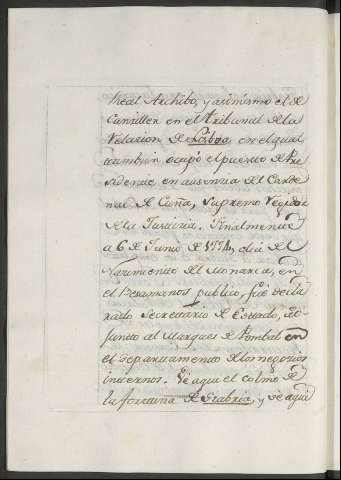 Real Archibo, y asimismo el de
Canziller en el Tribunal de la
Relacion de Lisboa, en el qual
tambien ocupó el puesto de Pre
sidente, en ausencia del Carde
nal de Cuña, Supremo Regidor
de la Justicia. Finalmente
a 6 de Junio de 1774, dia del
Nacimiento del Monarca, en
el Besamanos publico, fué decla
rado Secretario de Estado, ad-
junto al Marques de Pombal en
el departamento de los negocios
internos. Vé aqui el colmo de
la fortuna de Seabria, y vé aqui